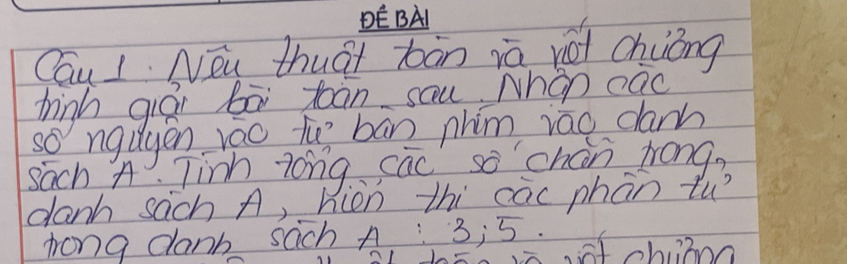 ĐỀ BÀI
Câu 1. Nêu thuật toán và viết chương
trình giải bài toán sau. Nhập các
số nguyên vào từ bàn phím vào danh
sách A. Tính tổng các số chẵn trong
danh sách A, hiển thị các phần tử
trong danh sách A : 3; 5.
viết chương